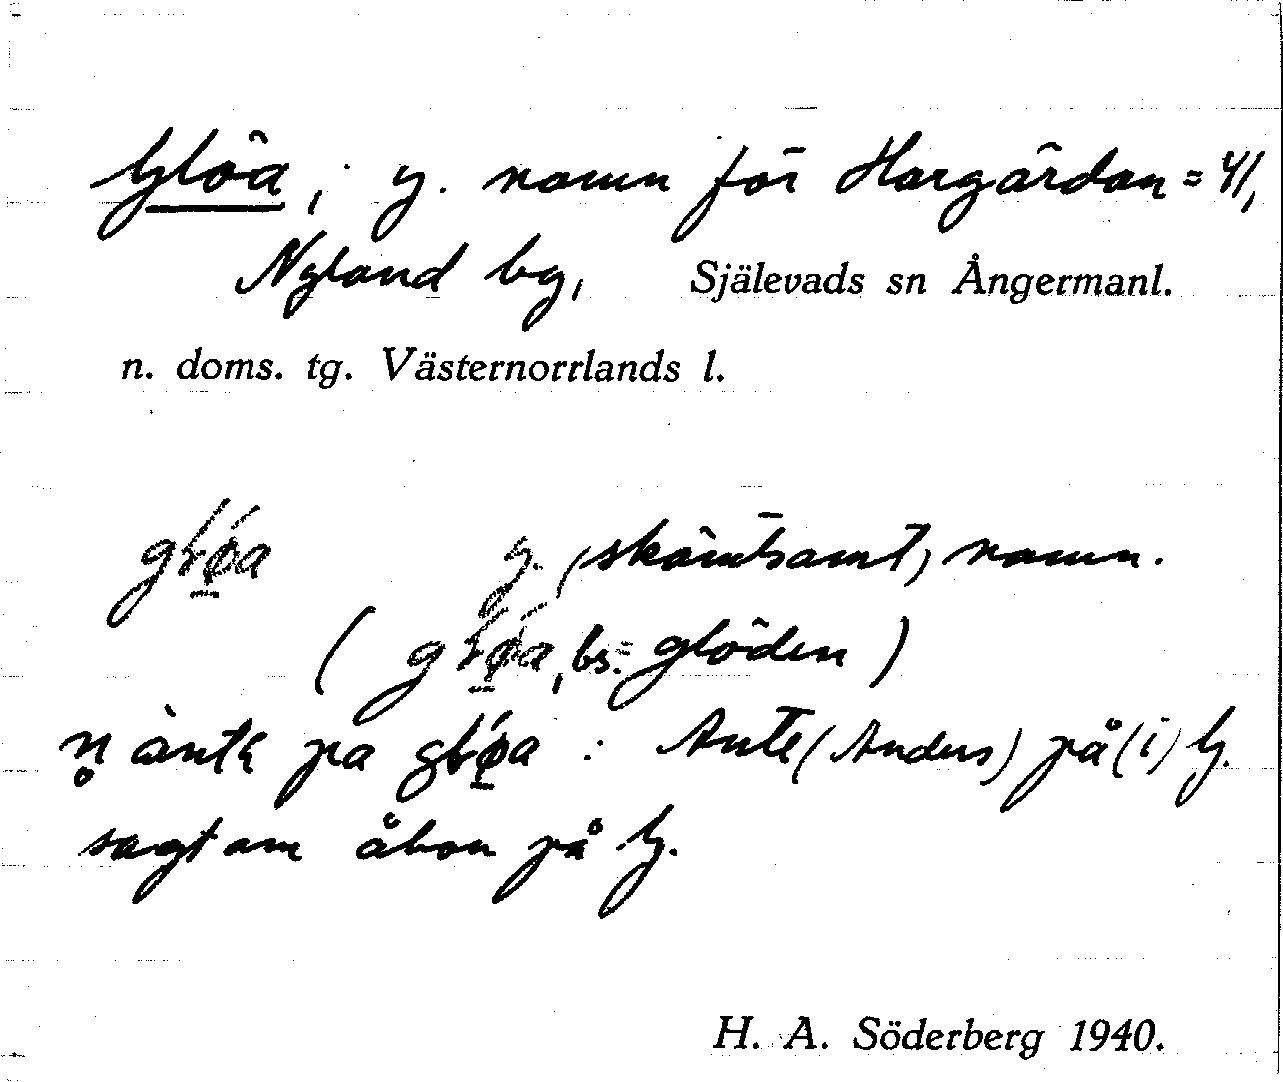 Glöa, y. namn för Hargården = 4/1,
Nyland by, Själevads sn Ångermanl.
n. doms. tg. Västernorrlands l.
y. (skämtsamt) namn.
bs. = glöden)
: Ante (Anders) på (i) G.
sagt om åbon på G.
H. A. Söderberg 1940.